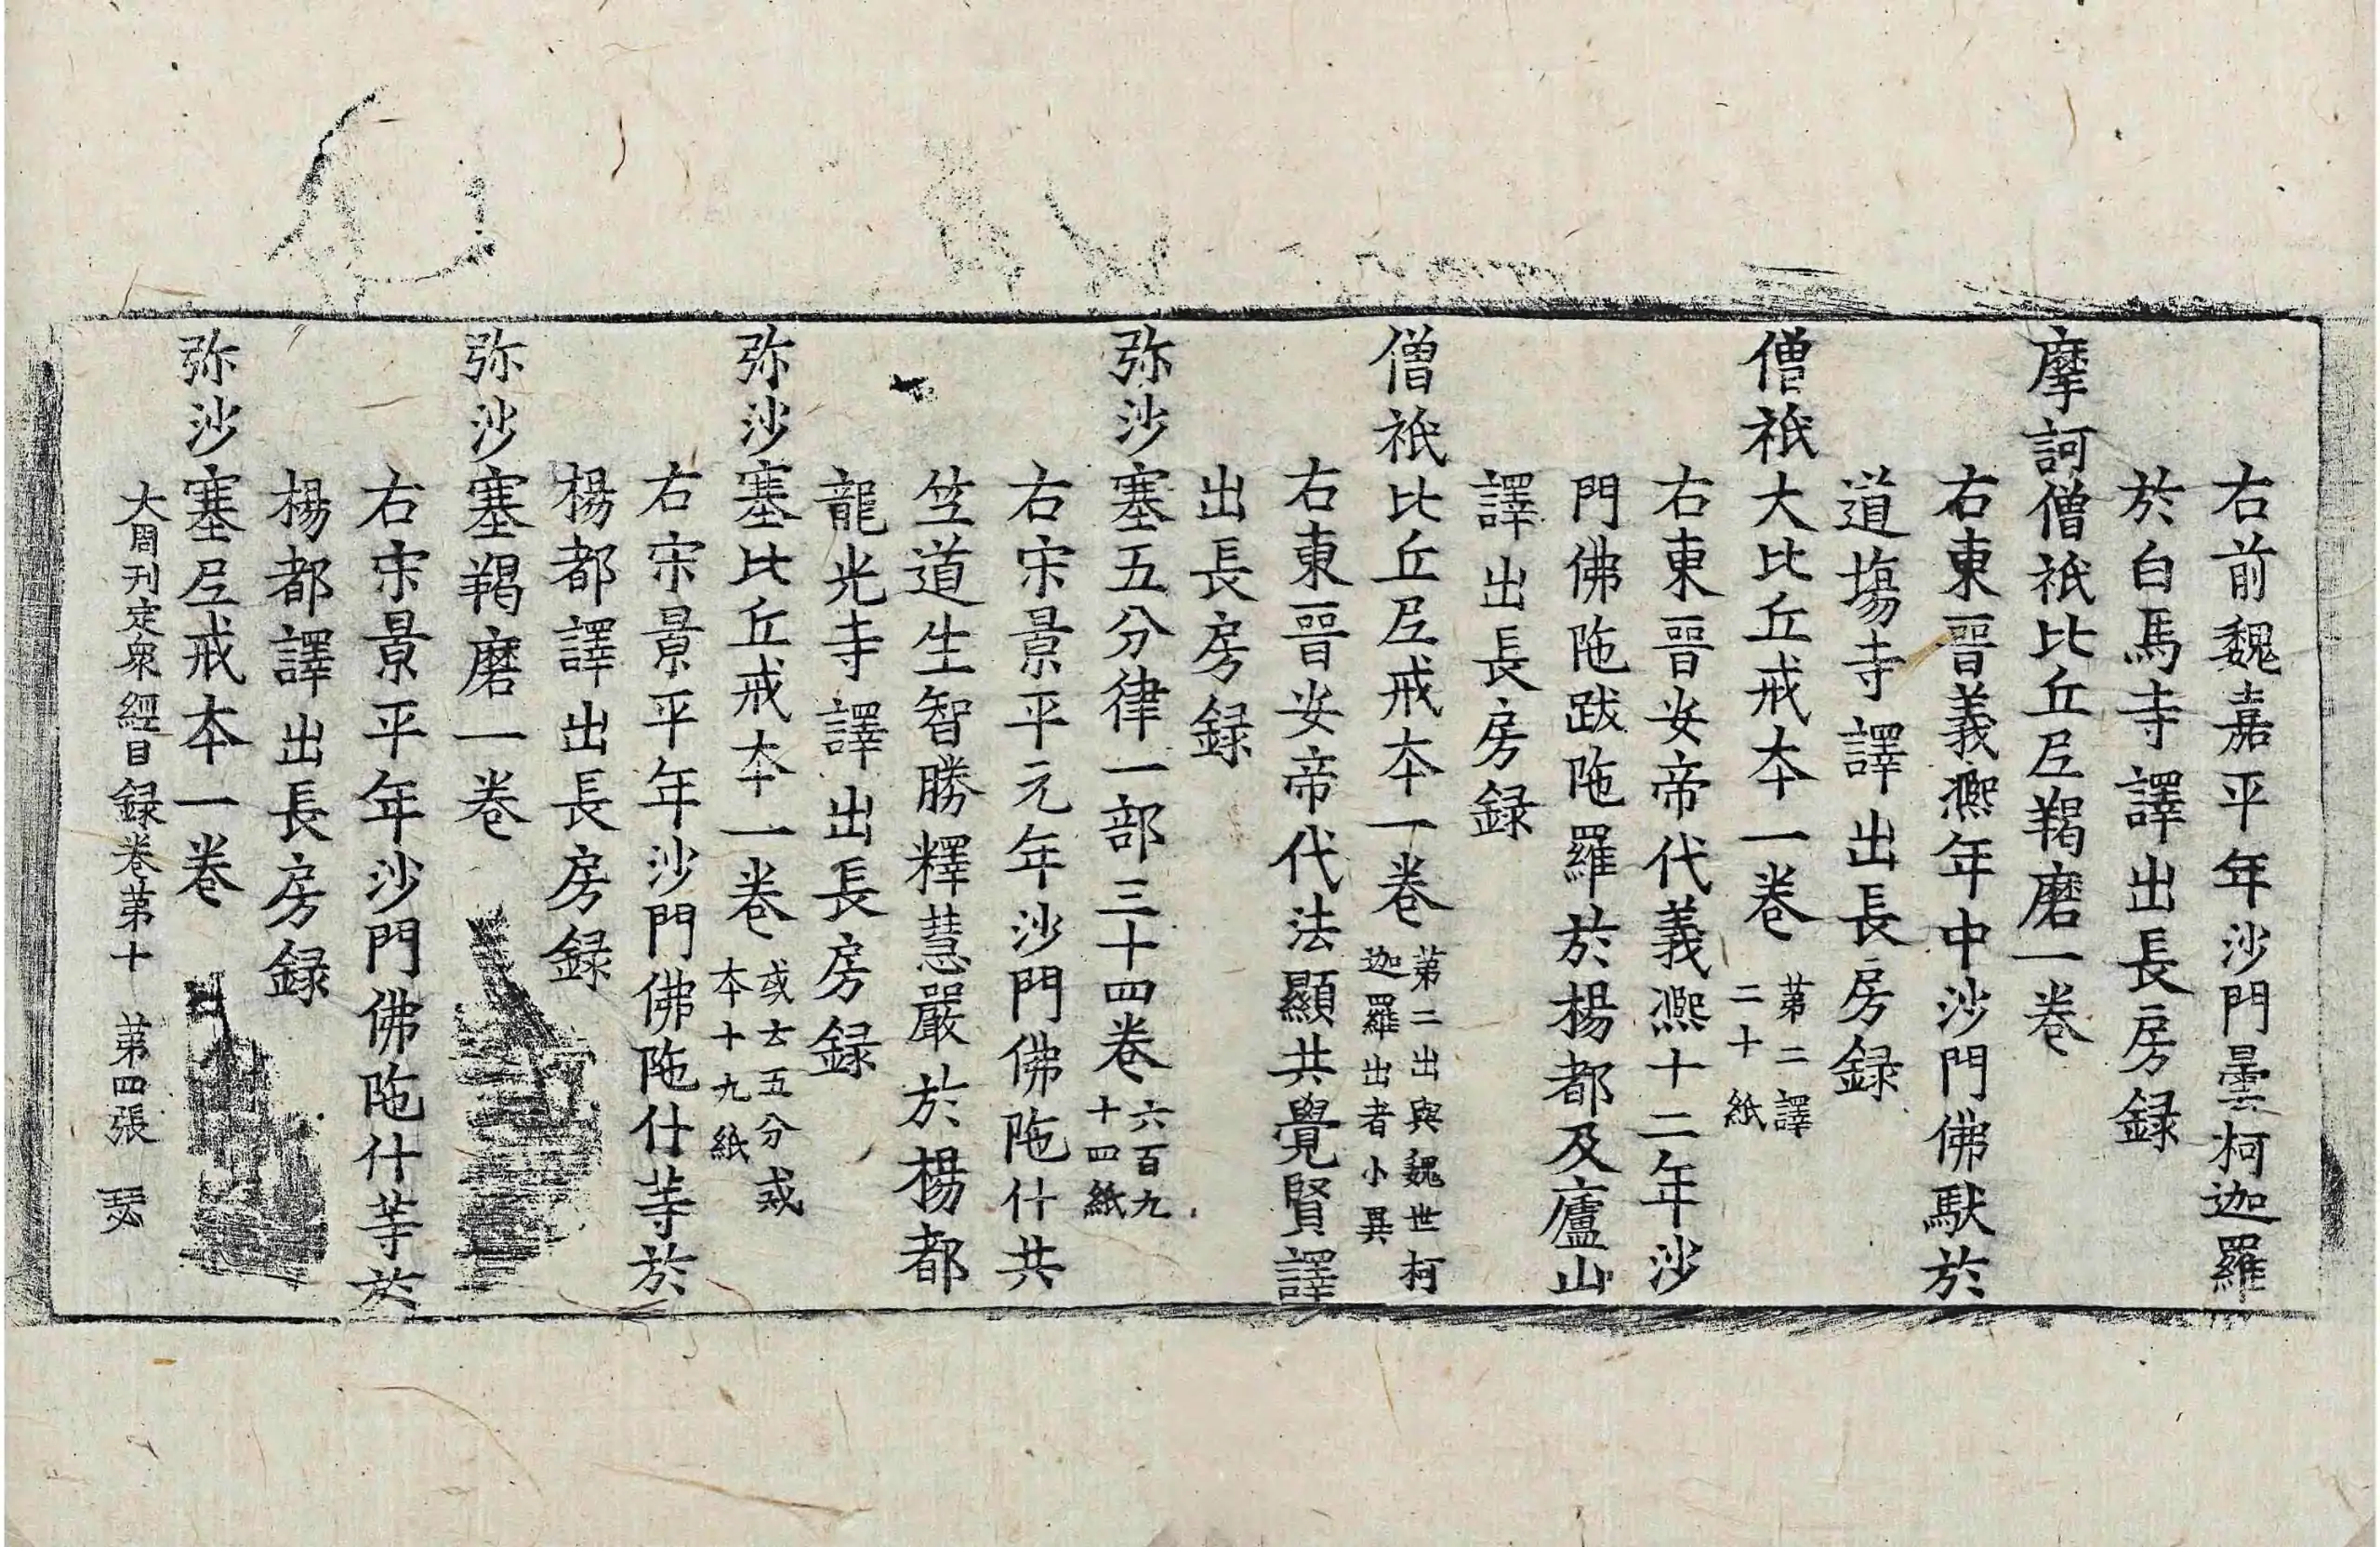 右前魏嘉平年沙門曇柯迦羅
於白馬寺譯出長房録
摩訶僧祇比丘尼羯磨一卷
右東晉義熈年中沙門佛馱於
道塲寺譯出長房録
僧祇大比丘戒夲一卷 苐二譯
二十紙
右東晉安帝代義熈十二年沙
門佛陁跋陁羅於楊都及廬山
譯出長房録
僧祇比丘尼戒夲一卷 苐二出與魏世柯
迦羅出者小異
右東晉安帝代法顯共覺賢譯
出長房録
弥沙塞五分律一部三十四卷 六百九
十四紙
右宋景平元年沙門佛陁什共
竺道生智勝釋慧嚴於楊都
龍光寺譯出長房録
弥沙塞比丘戒夲一卷 或云五分戒
夲十九紙
右宋景平年沙門佛陁什等於
楊都譯出長房録
弥沙塞羯磨一卷
右宋景平年沙門佛陁什等於
楊都譯出長房録
弥沙塞尼戒夲一卷
大周刊定衆經目録卷苐十 苐四張 瑟